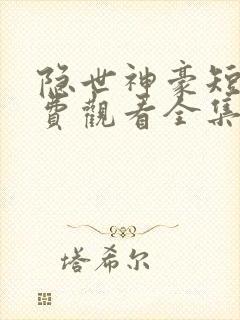 隐世神豪短
费觀看全集
塔希尔